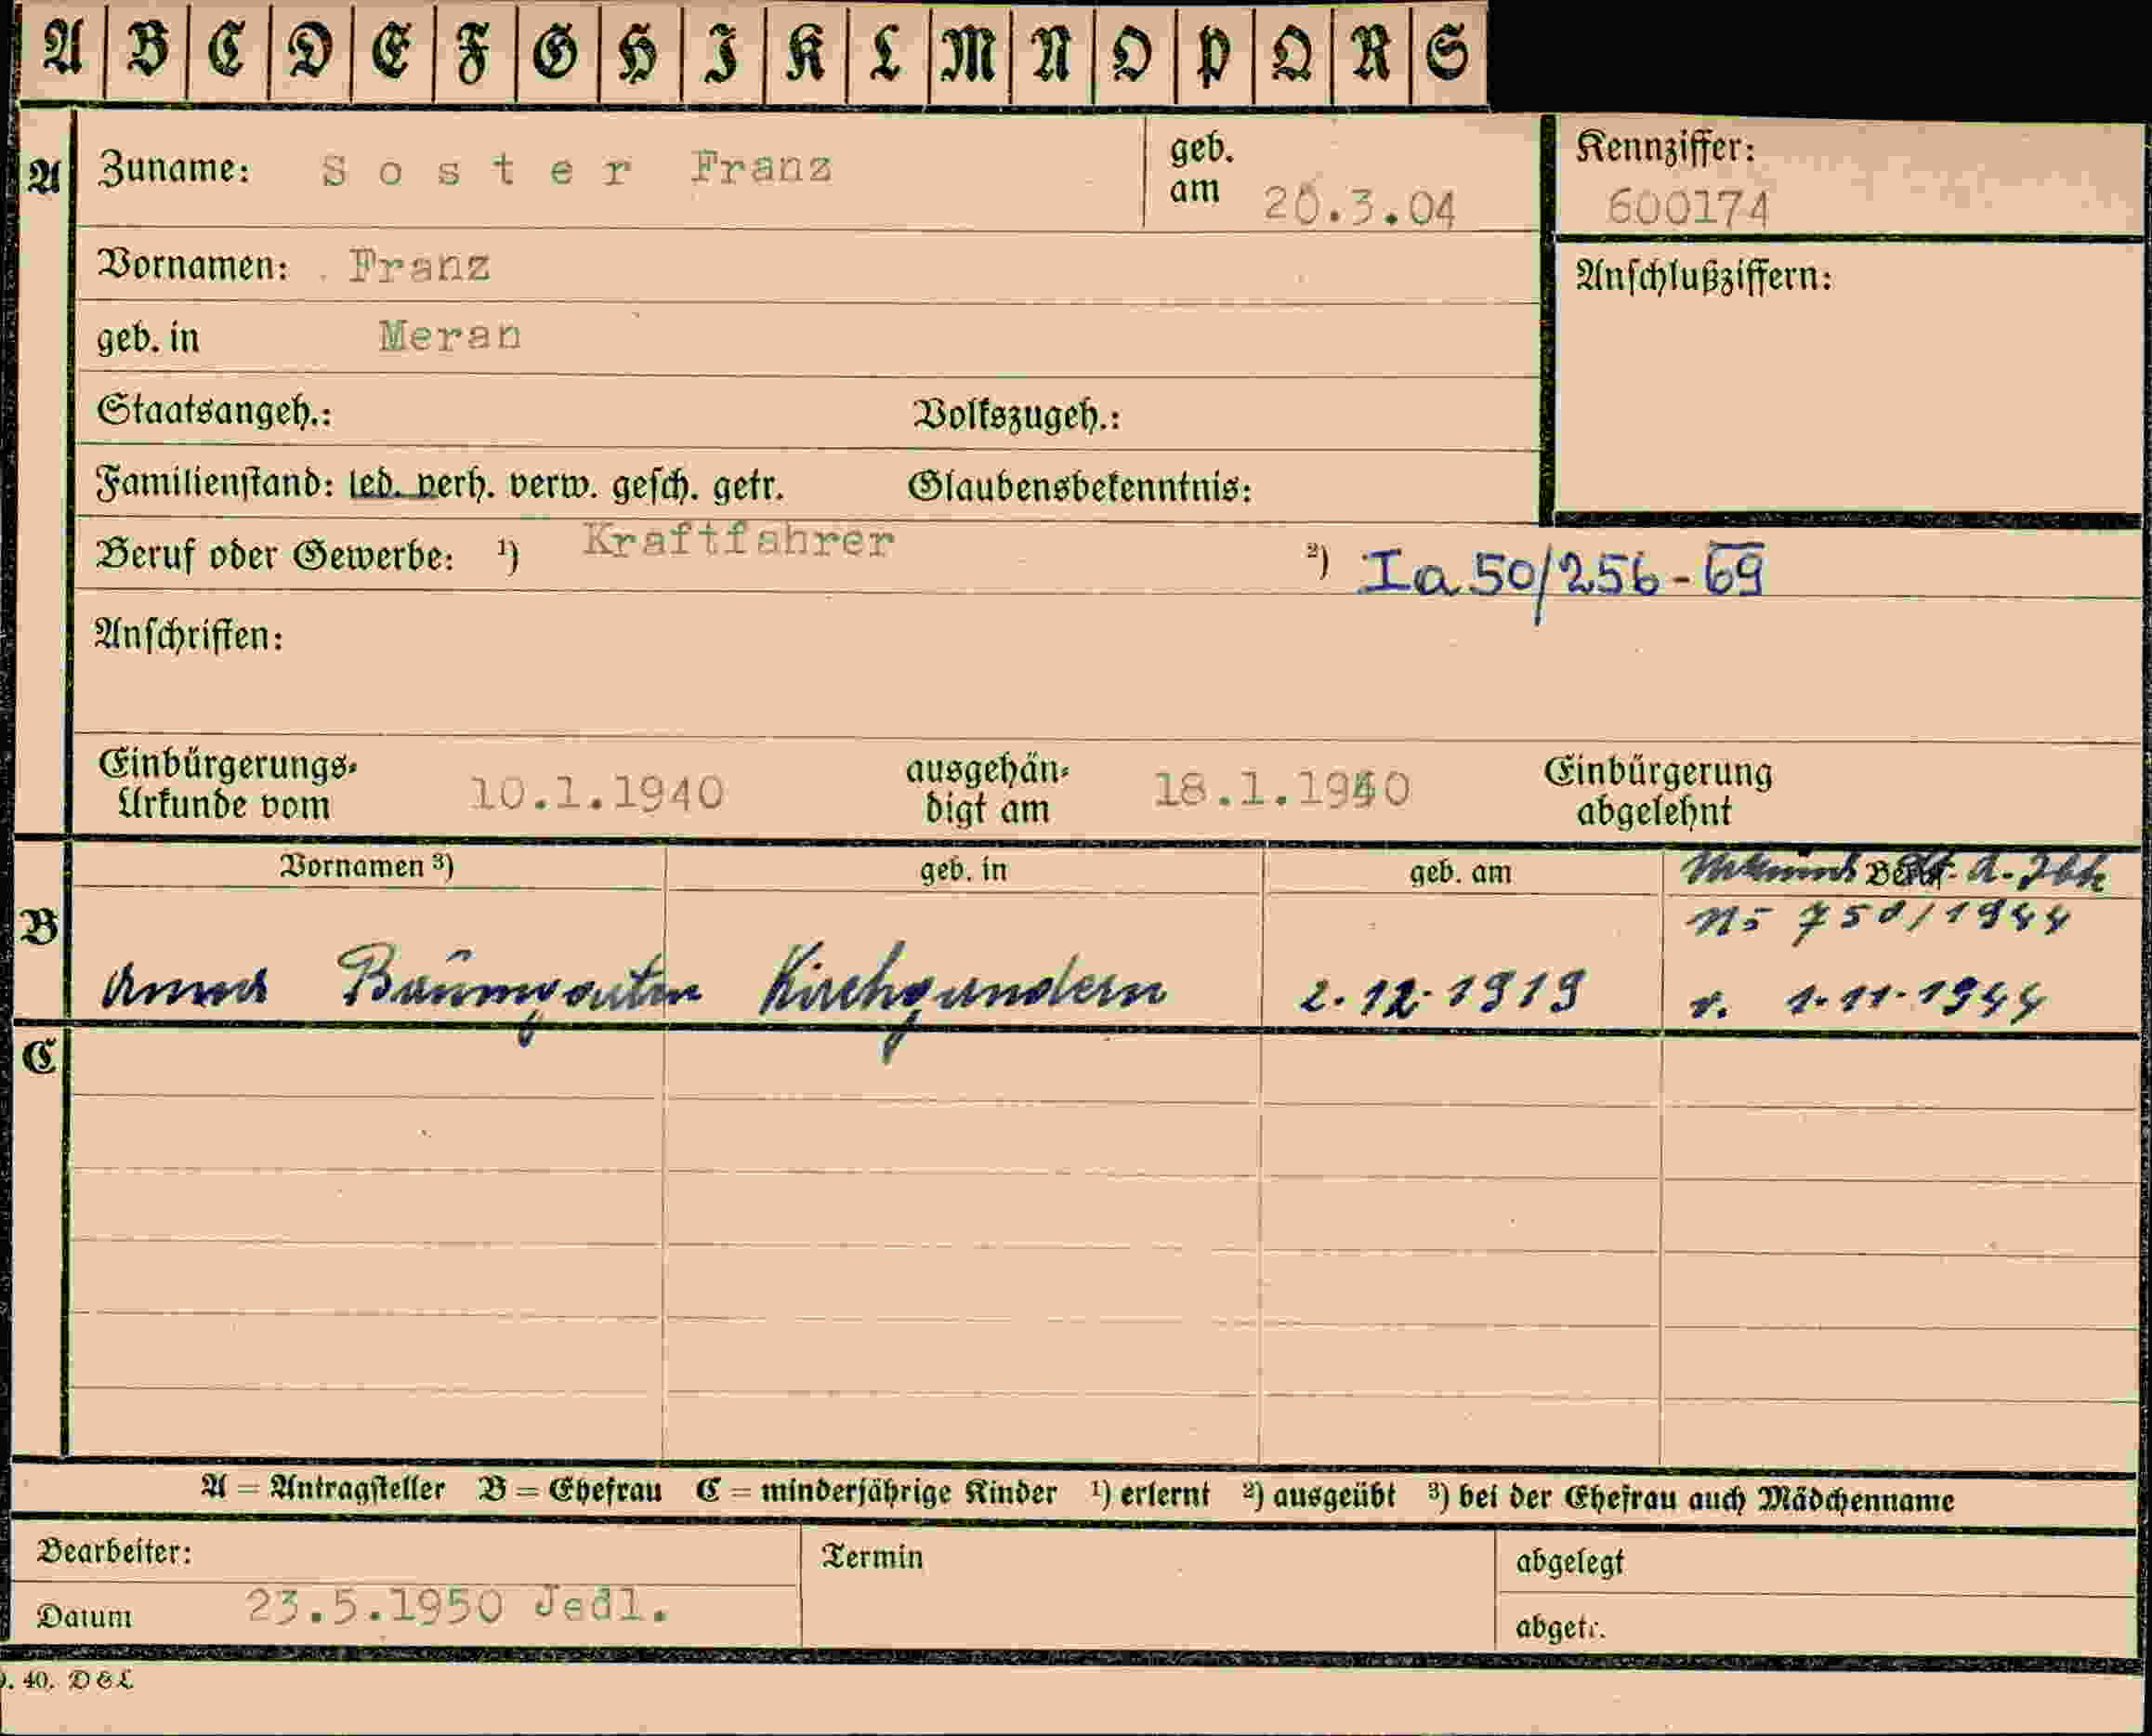 A B C D E F G H I K L M N O P Q R S
A Zuname: Soster Franz geb. am 20.3.04 Kennziffer: 600174
Vornamen: Franz Anschlußziffern:
geb. in Meran
Staatsangeh.: Volkszugeh.:
Familienstand: led. verh. verw. gesch. getr. Glaubensbekenntnis:
Beruf oder Gewerbe: 1) Kraftfahrer 2) Ia 50/256-69
Anschriften:
Einbürgerungs-Urkunde vom 10.1.1940 ausgehändigt am 18.1.1940 Einbürgerung abgelehnt
Vornamen 3) geb. in geb. am
B 750/1944
Anna Baumgarten Kirchgandern 2.12.1919 v. 1.11.1944
C
A = Antragsteller B = Ehefrau C = minderjährige Kinder 1) erlernt 2) ausgeübt 3) bei der Ehefrau auch Mädchenname
Bearbeiter: Termin abgelegt
Datum 23.5.1950 Jedl. abgetr.
. 40. D&L